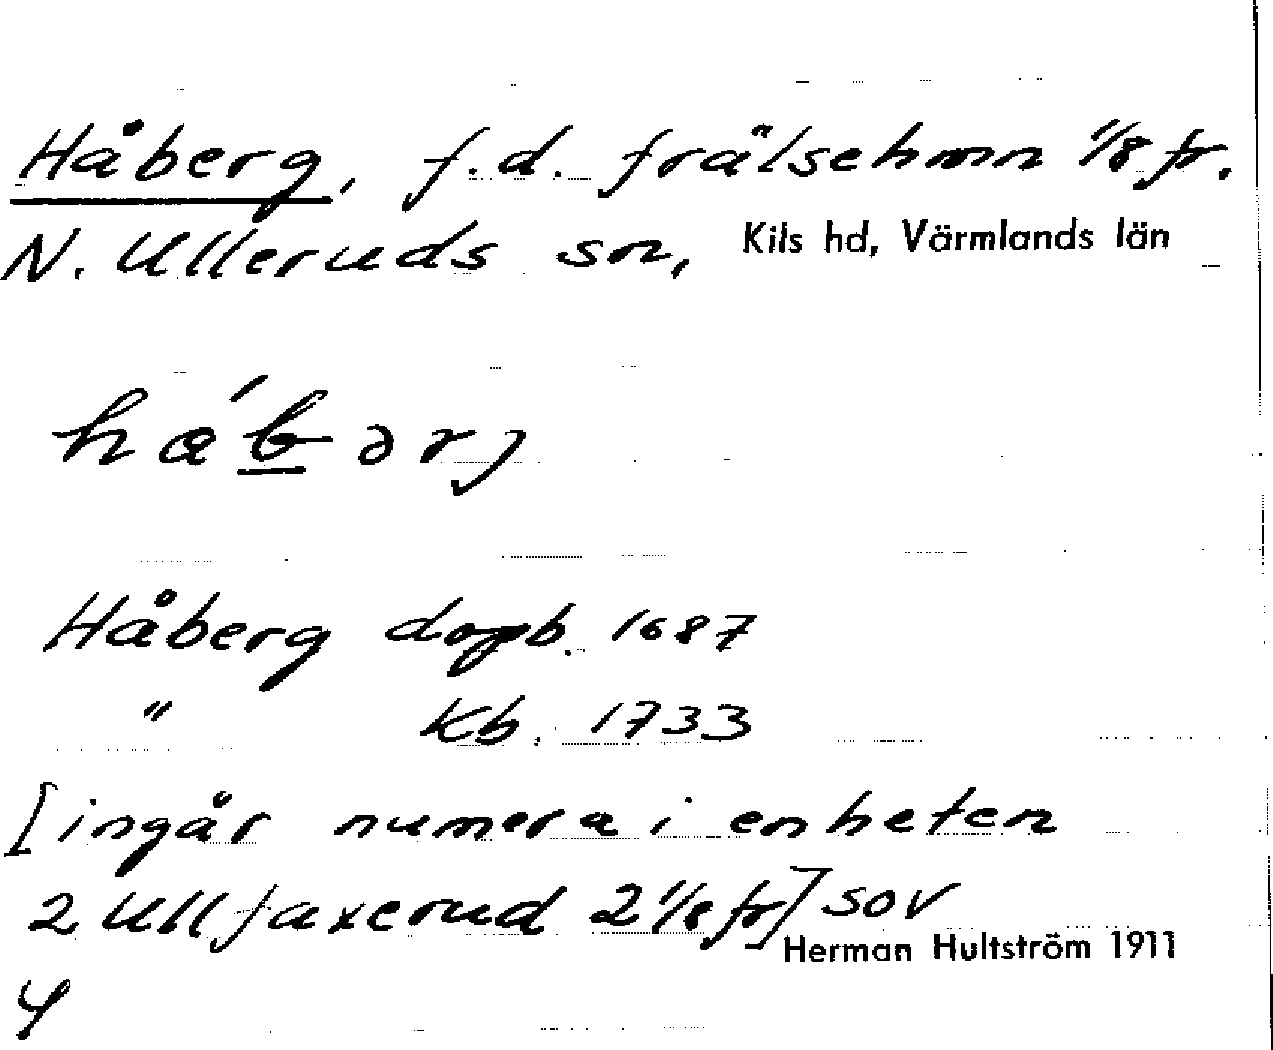 Håberg, f.d. frälsehmn 1/8 fr.
N. Ulleruds sn, Kils hd, Värmlands län
Håberg dopb. 1687
" Kb. 1733
[ingår numera i enheten
2 Ullfaxerud 2 1/8 fr] SOV
Herman Hultström 1911
4